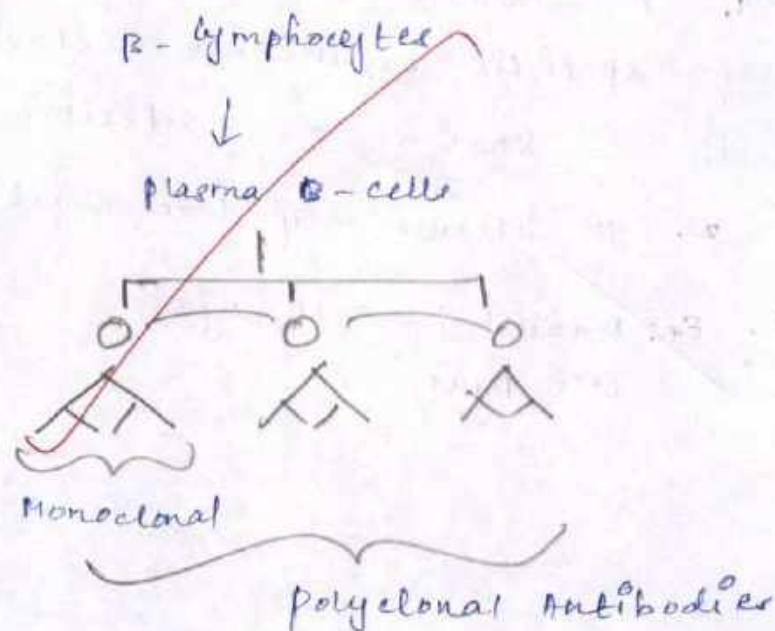 B - Lymphocytes
Plasma B - cells
Monoclonal
Polyclonal Antibodies